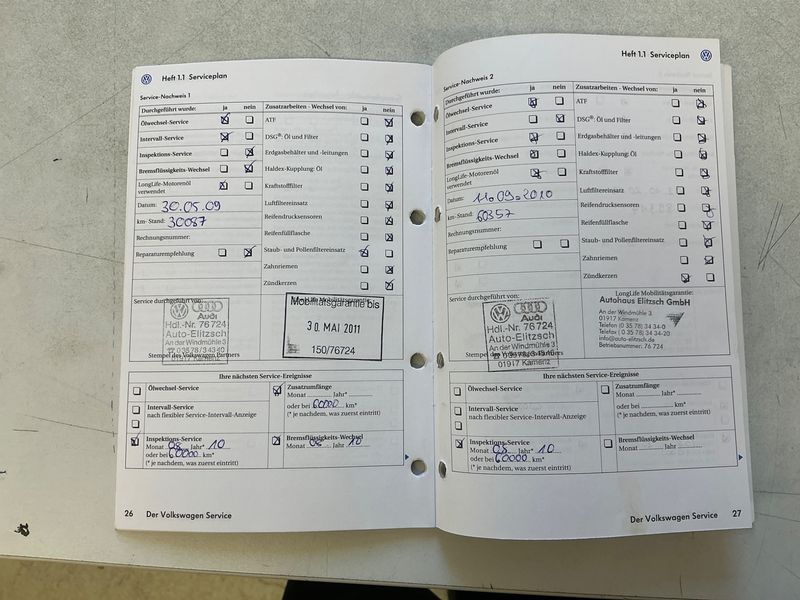 Heft 1.1 Serviceplan
Service-Nachweis 1
Durchgeführt wurde: ja nein
Ölwechsel-Service
Intervall-Service
Inspektions-Service
Bremsflüssigkeits-Wechsel
LongLife-Motorenöl
verwendet
Datum: 30.05.09
km-Stand: 30087
Rechnungsnummer:
Reparaturempfehlung
Zusatzarbeiten - Wechsel von: ja nein
ATF
DSG®: Öl und Filter
Erdgasbehälter und -leitungen
Haldex-Kupplung: Öl
Kraftstofffilter
Luftfiltereinsatz
Reifendrucksensoren
Reifenfüllflasche
Staub- und Pollenfiltereinsatz
Zahnriemen
Zündkerzen
Service durchgeführt von:
Audi
Hdl.-Nr. 76 724
Auto-Elitzsch
An der Windmühle 3
☎ 03578/34340
01917 Kamenz
Stempel des Volkswagen Partners
Mobilitätsgarantie bis
30. MAI 2011
150/76724
Ihre nächsten Service-Ereignisse
Ölwechsel-Service
Intervall-Service
nach flexibler Service-Intervall-Anzeige
Inspektions-Service
Monat 08 Jahr* 10
oder bei 60000 km*
(* je nachdem, was zuerst eintritt)
Zusatzumfänge
Monat Jahr*
oder bei 60000 km*
(* je nachdem, was zuerst eintritt)
Bremsflüssigkeits-Wechsel
Monat 08 Jahr 10
26 Der Volkswagen Service
Heft 1.1 Serviceplan
Service-Nachweis 2
Durchgeführt wurde: ja nein
Ölwechsel-Service
Intervall-Service
Inspektions-Service
Bremsflüssigkeits-Wechsel
LongLife-Motorenöl
verwendet
Datum: 11.09.2010
km-Stand: 60357
Rechnungsnummer:
Reparaturempfehlung
Zusatzarbeiten - Wechsel von: ja nein
ATF
DSG®: Öl und Filter
Erdgasbehälter und -leitungen
Haldex-Kupplung: Öl
Kraftstofffilter
Luftfiltereinsatz
Reifendrucksensoren
Reifenfüllflasche
Staub- und Pollenfiltereinsatz
Zahnriemen
Zündkerzen
Service durchgeführt von:
Audi
Hdl.-Nr. 76 724
Auto-Elitzsch
An der Windmühle 3
☎ 03578/34340
01917 Kamenz
Stempel des Volkswagen Partners
LongLife Mobilitätsgarantie:
Autohaus Elitzsch GmbH
An der Windmühle 3
01917 Kamenz
Telefon (0 35 78) 34 34-0
Telefax (0 35 78) 34 34-20
info@auto-elitzsch.de
Betriebsnummer: 76 724
Ihre nächsten Service-Ereignisse
Ölwechsel-Service
Intervall-Service
nach flexibler Service-Intervall-Anzeige
Inspektions-Service
Monat 08 Jahr* 10
oder bei 60000 km*
(* je nachdem, was zuerst eintritt)
Zusatzumfänge
Monat Jahr*
oder bei km*
(* je nachdem, was zuerst eintritt)
Bremsflüssigkeits-Wechsel
Monat Jahr
Der Volkswagen Service 27